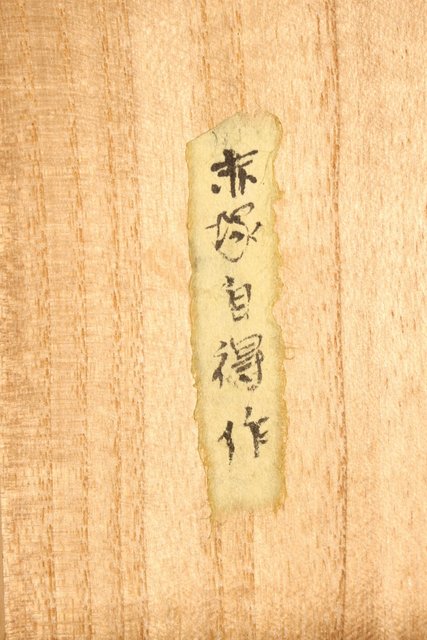 赤塚自得作